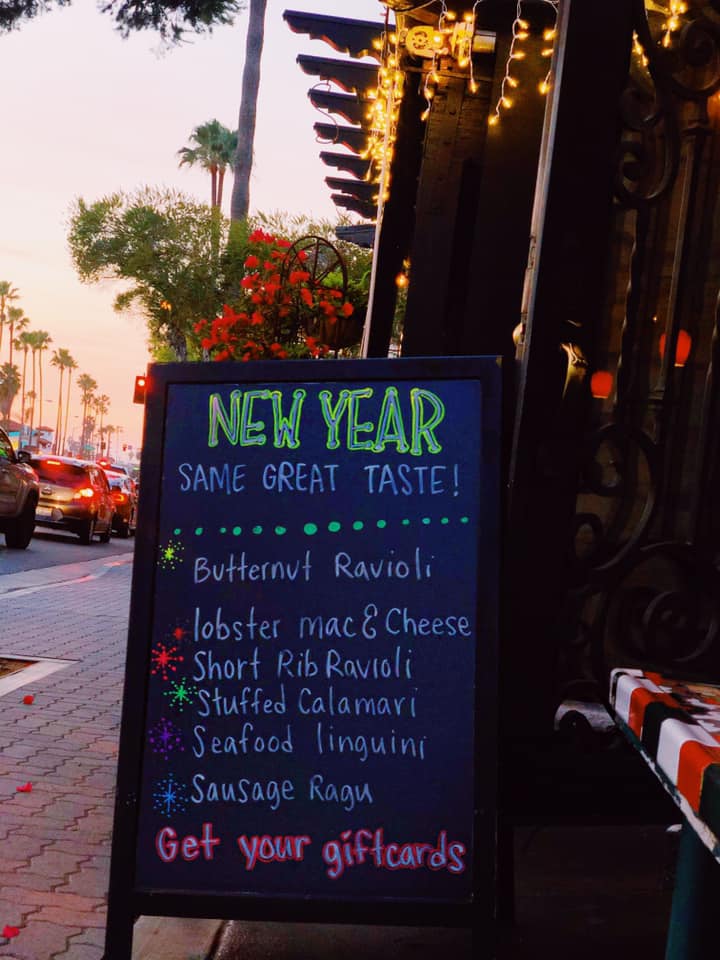 NEW YEAR
SAME GREAT TASTE!
Butternut Ravioli
lobster mac & Cheese
Short Rib Ravioli
Stuffed Calamari
Seafood linguini
Sausage Ragu
Get your giftcards